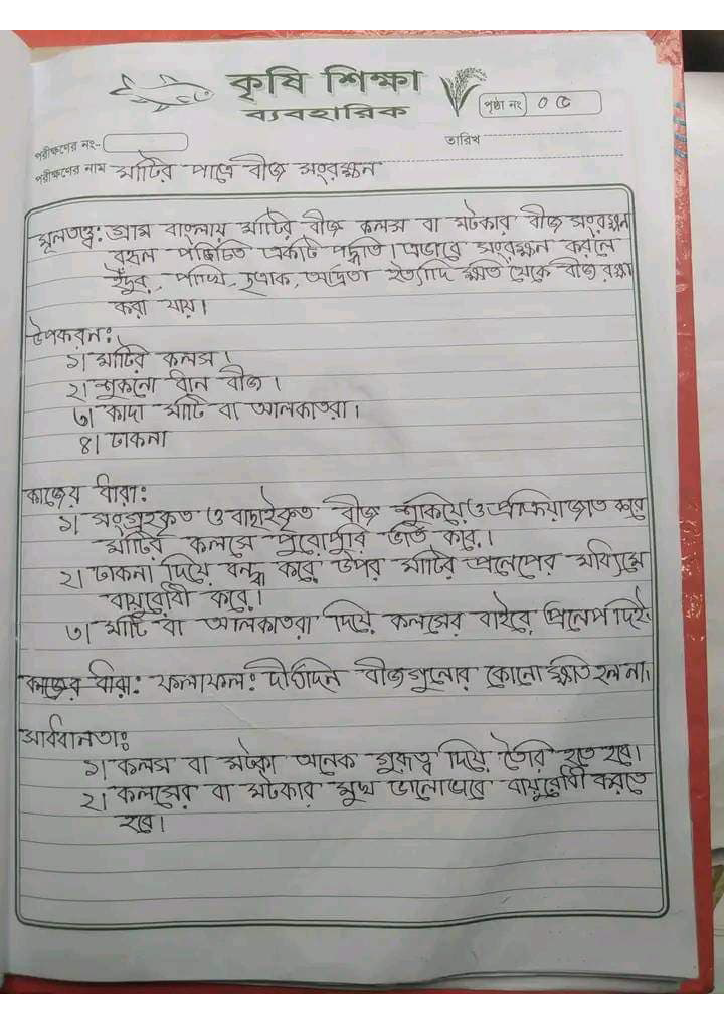 কৃষি শিক্ষা
ব্যবহারিক
পৃষ্ঠা নং ০৫
পরীক্ষণের নং-
তারিখ
পরীক্ষণের নাম মাটির পাত্রে বীজ সংরক্ষন
মূলতত্ত্ব: গ্রাম বাংলায় মাটির বীজ কলস বা মটকার বীজ সংরক্ষন
বহুল পরিচিত একটি পদ্ধতি। এভাবে সংরক্ষন করলে
ইঁদুর, পাখি, ছত্রাক, আর্দ্রতা ইত্যাদি ক্ষতি থেকে বীজ রক্ষা
করা যায়।
উপকরন:
১। মাটির কলস।
২। শুকনো ধান বীজ।
৩। কাদা মাটি বা আলকাতরা।
৪। ঢাকনা
কাজের ধারা:
১। সংগ্রহকৃত ও বাছাইকৃত বীজ শুকিয়ে ও প্রক্রিয়াজাত করে
মাটির কলসে পুরোপুরি ভর্তি করে।
২। ঢাকনা দিয়ে বন্দ্ধ করে উপর মাটির প্রলেপের মাধ্যিমে
বায়ুরোধী করে।
৩। মাটি বা আলকাতরা দিয়ে কলসের বাইরে প্রলেপ দিই।
কাজের ধারা: ফলাফল: দীর্ঘদিন বীজগুলোর কোনো ক্ষতি হল না।
সাবধানতাঃ
১। কলস বা মটকা অনেক গুরুত্ব দিয়ে তৈরি হতে হবে।
২। কলসের বা মটকার মুখ ভালোভাবে বায়ুরোধী করতে
হবে।